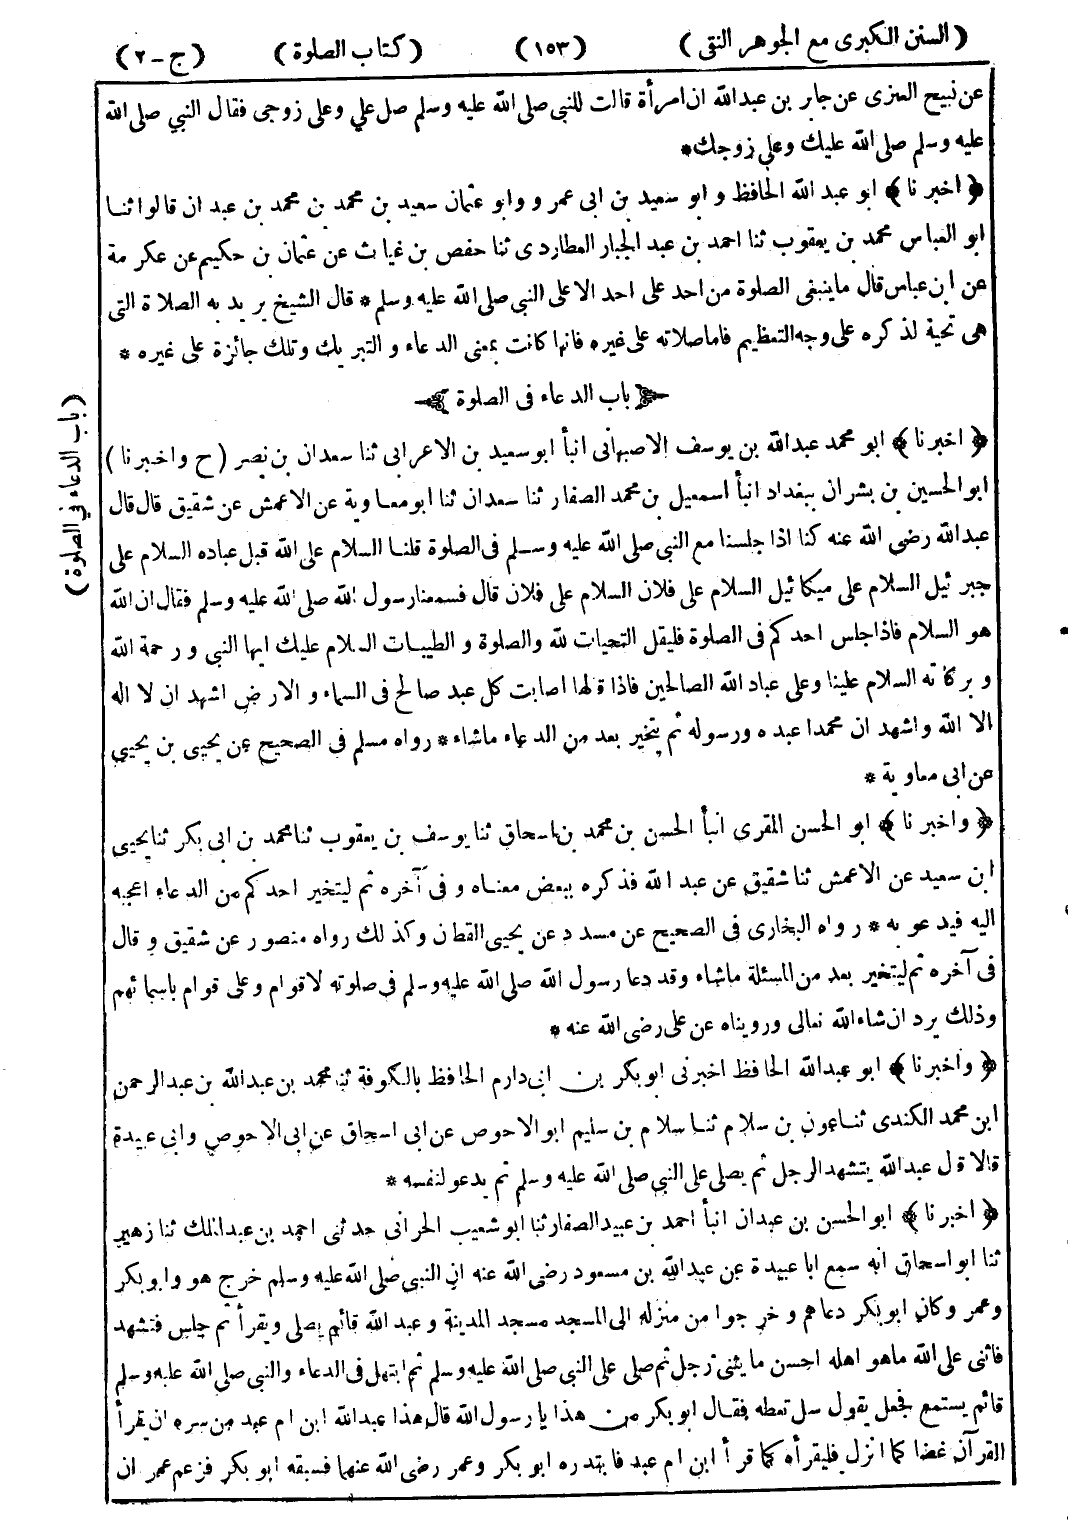 (السنن الكبرى مع الجوهر النقى) (١٥٣) (كتاب الصلوة) (ج-٢)
عن نبيح العنزى عن جابر بن عبدالله ان امرأة قالت للنبي صلى الله عليه وسلم صل علي وعلى زوجى فقال النبي صلى الله
عليه وسلم صلى الله عليك وعلى زوجك*
﴿اخبرنا﴾ ابو عبد الله الحافظ و ابو سعيد بن ابى عمرو وابو عثمان سعيد بن محمد بن محمد بن عبدان قالوا ثنا
ابو العباس محمد بن يعقوب ثنا احمد بن عبد الجبار العطاردى ثنا حفص بن غياث عن عثمان بن حكيم عن عكرمة
عن ابن عباس قال ماينبغى الصلوة من احد على احد الا على النبي صلى الله عليه وسلم* قال الشيخ يريد به الصلاة التى
هى تحية لذكره على وجه التعظيم فاما صلاته على غيره فانها كانت بمعنى الدعاء و التبريك وتلك جائزة على غيره *
باب الدعاء فى الصلوة
(باب الدعاء في الصلوة)
﴿اخبرنا﴾ ابو محمد عبدالله بن يوسف الاصبهانى انبأ ابو سعيد بن الاعرابى ثنا سعدان بن نصر (ح واخبرنا)
ابو الحسين بن بشران ببغداد انبأ اسمعيل بن محمد الصفار ثنا سعدان ثنا ابو معاوية عن الاعمش عن شقيق قال قال
عبدالله رضى الله عنه كنا اذا جلسنا مع النبي صلى الله عليه وسلم فى الصلوة قلنا السلام على الله قبل عباده السلام على
جبرئيل السلام على ميكائيل السلام على فلان السلام على فلان قال فسمعنا رسول الله صلى الله عليه وسلم فقال ان الله
هو السلام فاذا جلس احدكم فى الصلوة فليقل التحيات لله والصلوة و الطيبات السلام عليك ايها النبي ورحمة الله
و بركاته السلام علينا وعلى عباد الله الصالحين فاذا قالها اصابت كل عبد صالح فى السماء و الارض اشهد ان لا اله
الا الله واشهد ان محمدا عبده ورسوله ثم يتخير بعد من الدعاء ماشاء* رواه مسلم فى الصحيح عن يحيى بن يحيى
عن ابى معاوية *
﴿واخبرنا﴾ ابو الحسن المقرى انبأ الحسن بن محمد بن اسحاق ثنا يوسف بن يعقوب ثنا محمد بن ابى بكر ثنا يحيى
ابن سعيد عن الاعمش ثنا شقيق عن عبد الله فذكره ببعض معناه و فى آخره ثم ليتخير احدكم من الدعاء اعجبه
اليه فيدعو به* رواه البخارى فى الصحيح عن مسدد عن يحيى القطان وكذلك رواه منصور عن شقيق و قال
فى آخره ثم ليتخير بعد من المسئلة ماشاء وقد دعا رسول الله صلى الله عليه وسلم فى صلوته لاقوام وعلى قوام باسمائهم
وذلك يرد ان شاء الله تعالى ورويناه عن على رضى الله عنه *
﴿واخبرنا﴾ ابو عبدالله الحافظ اخبرنى ابو بكر بن ابى دارم الحافظ بالكوفة ثنا محمد بن عبدالله بن عبدالرحمن
ابن محمد الكندى ثنا عون بن سلام ثنا سلام بن سليم ابو الاحوص عن ابى اسحاق عن ابى الاحوص وابى عبيدة
قالا قال عبدالله يتشهد الرجل ثم يصلى على النبي صلى الله عليه وسلم ثم يدعو لنفسه *
﴿اخبرنا﴾ ابو الحسن بن عبدان انبأ احمد بن عبيد الصفار ثنا ابو شعيب الحرانى حدثنى احمد بن عبدالملك ثنا زهير
ثنا ابو اسحاق انه سمع ابا عبيدة عن عبدالله بن مسعود رضى الله عنه ان النبي صلى الله عليه وسلم خرج هو وابو بكر
وعمر وكان ابو بكر دعاهم وخرجوا من منزله الى المسجد مسجد المدينة وعبد الله قائم يصلى ويقرأ ثم جلس فتشهد
فاثنى على الله ماهو اهله احسن ما يثنى رجل ثم صلى على النبي صلى الله عليه وسلم ثم ابتهل فى الدعاء والنبي صلى الله عليه وسلم
قائم يستمع فجعل يقول سل تعطه فقال ابو بكر من هذا يا رسول الله قال هذا عبدالله ابن ام عبد من سره ان يقرأ
القرآن غضا كما انزل فليقرأه كما قرأ ابن ام عبد فابتدره ابو بكر وعمر رضى الله عنهما فسبقه ابو بكر فزعم عمر ان